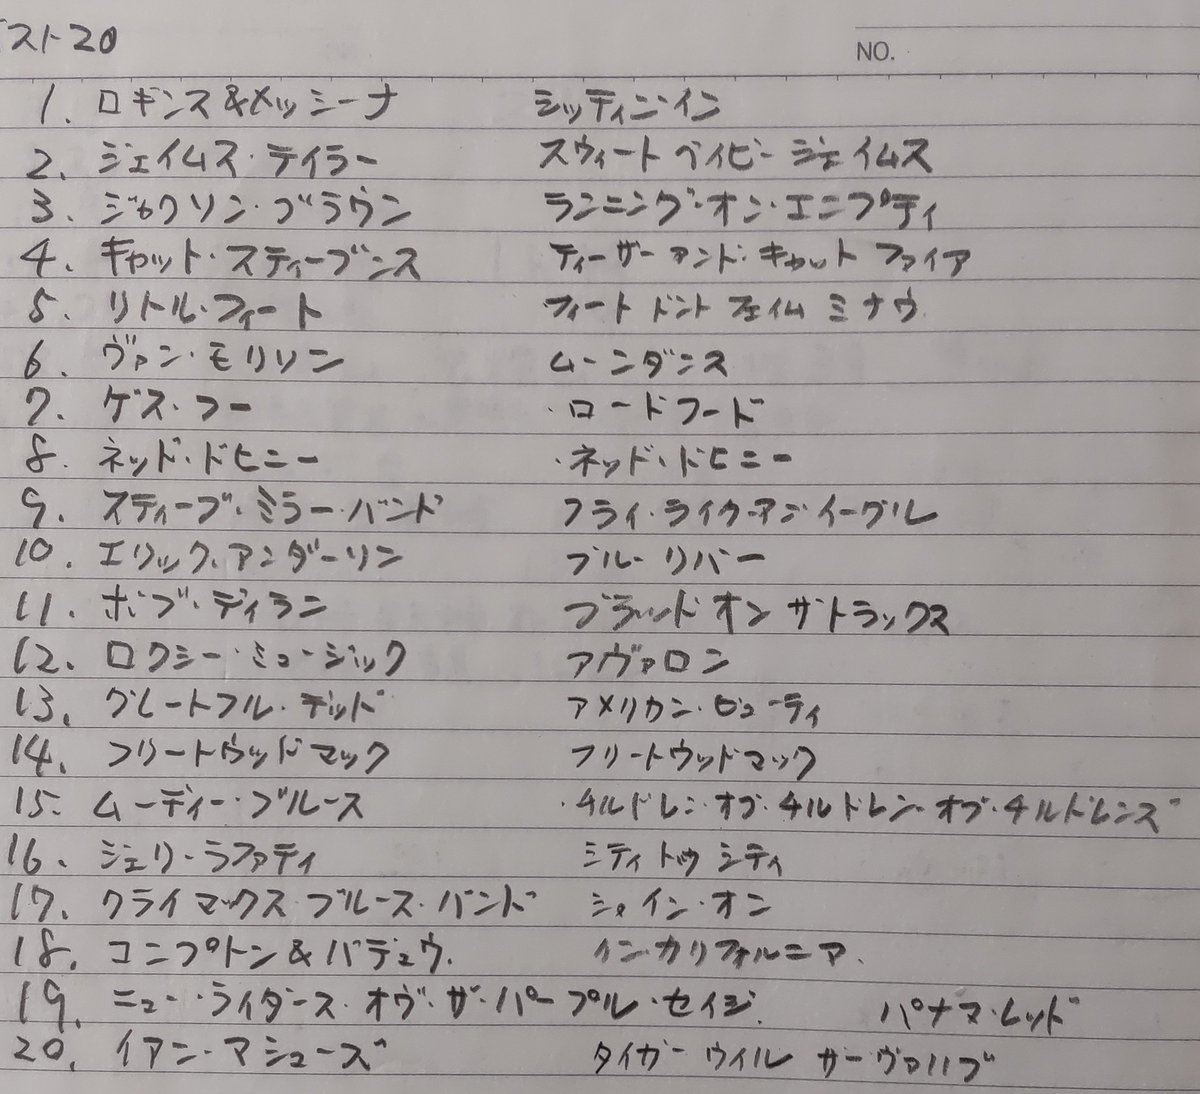 スト20
NO.
1. ロギンス&メッシーナ シッティン・イン
2. ジェイムス・テイラー スウィート ベイビー ジェイムス
3. ジャクソン・ブラウン ランニング・オン・エンプティ
4. キャット・スティーブンス ティーザー アンド・キャット ファイア
5. リトル・フィート フィート ドント フェイム ミナウ
6. ヴァン・モリソン ムーンダンス
7. ゲス・フー ・ロードフード
8. ネッド・ドヒニー ・ネッド・ドヒニー
9. スティーブ・ミラー・バンド フライ・ライク・アン・イーグル
10. エリック・アンダーソン ブルー リバー
11. ボブ・ディラン ブラッド オン ザ トラックス
12. ロクシー・ミュージック アヴァロン
13. グレートフル・デッド アメリカン・ビューティ
14. フリートウッドマック フリートウッドマック
15. ムーディー・ブルース ・チルドレン・オブ・チルドレン・オブ・チルドレンズ
16. ジェリー・ラファティ シティ トゥ シティ
17. クライマックス ブルース・バンド シャイン・オン
18. コンプトン&バデュウ. イン・カリフォルニア.
19. ニュー・ライダース・オヴ・ザ・パープル・セイジ. パナマ・レッド
20. イアン・マシューズ タイガー ウィル サーヴァイブ